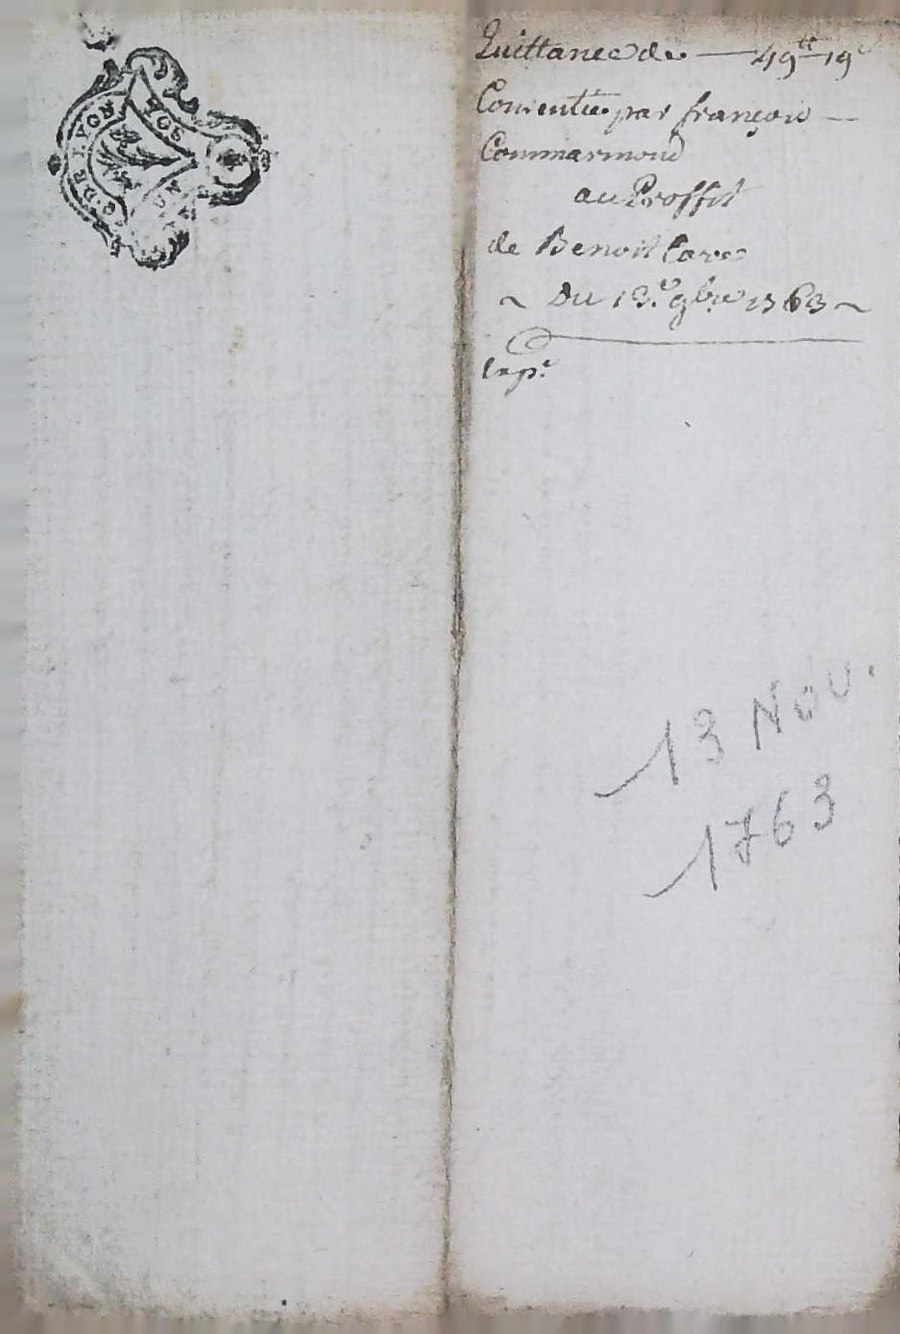 G. DE LYON
SOL
UN
Quittance de — 49ᵗᵗ 19ˢ
Consentie par françois —
Commarmond
au Proffit
de Benoit
~ Du 13.ᵉ 9bre 1763 ~
Exp.ᵉ
13 Nov.
1763